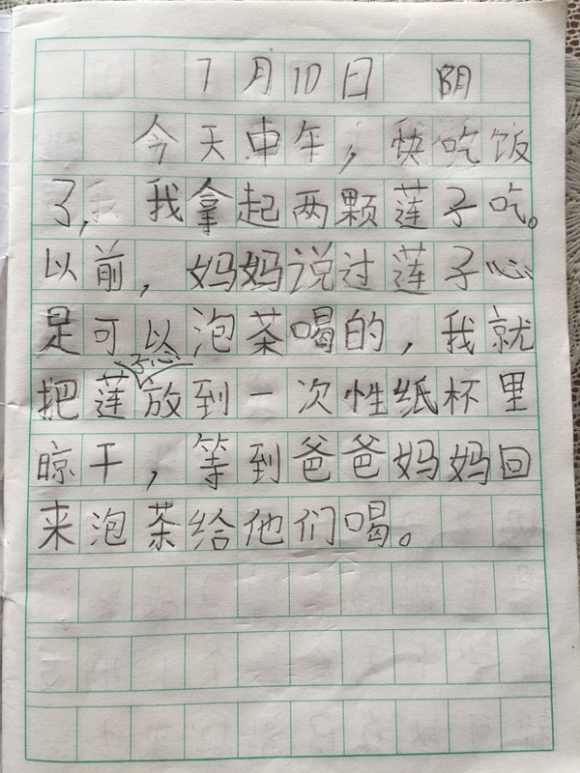 7月10日 阴
今天中午，快吃饭
了，我拿起两颗莲子吃。
以前，妈妈说过莲子心
是可以泡茶喝的，我就
把莲子心放到一次性纸杯里
晾干，等到爸爸妈妈回
来泡茶给他们喝。